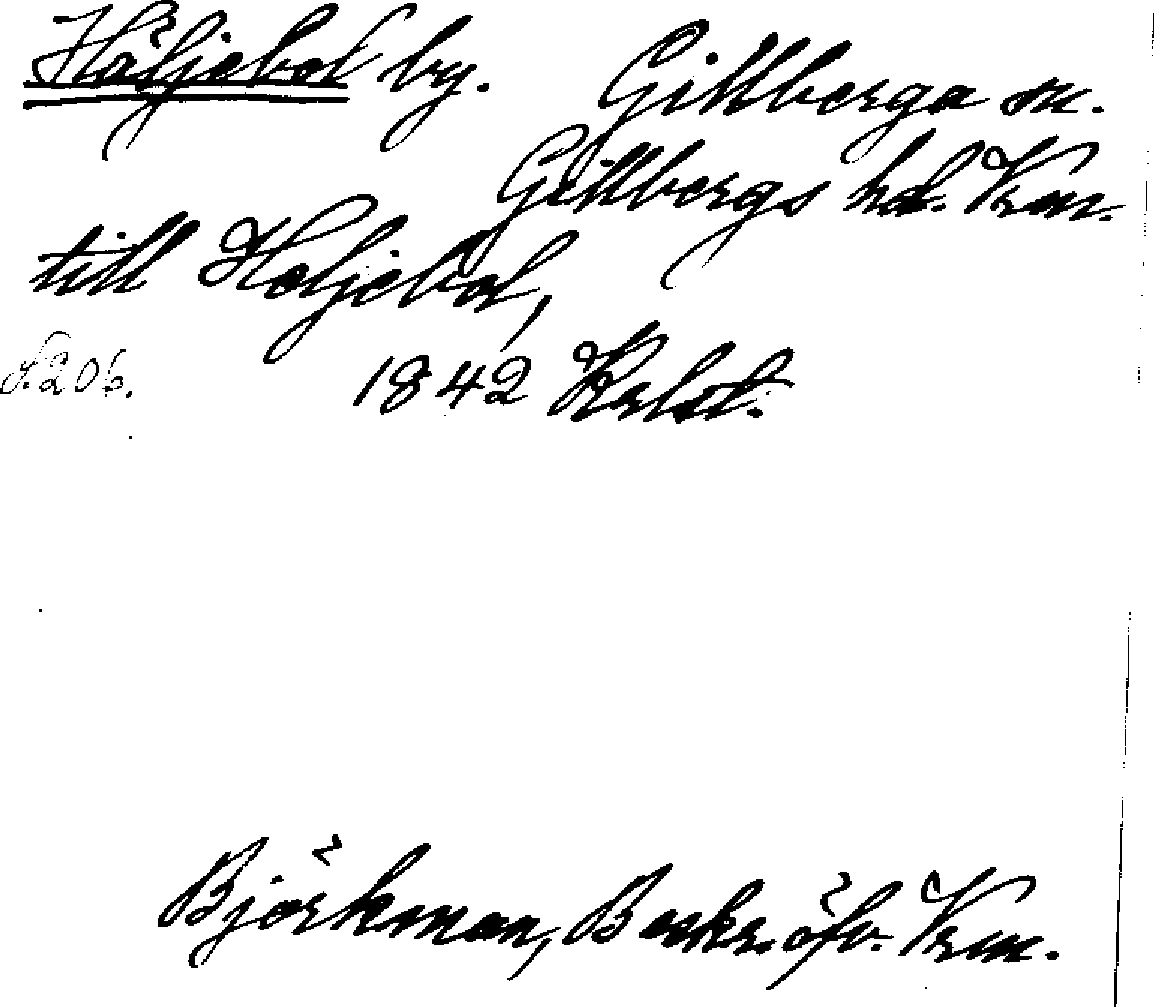 Häljebol by. Gillberga sn.
Gillbergs hd. Vrm.
till Heljebol,
s. 206. 1842 Krlst.
Björkman, Beskr. öfv. Vrm.